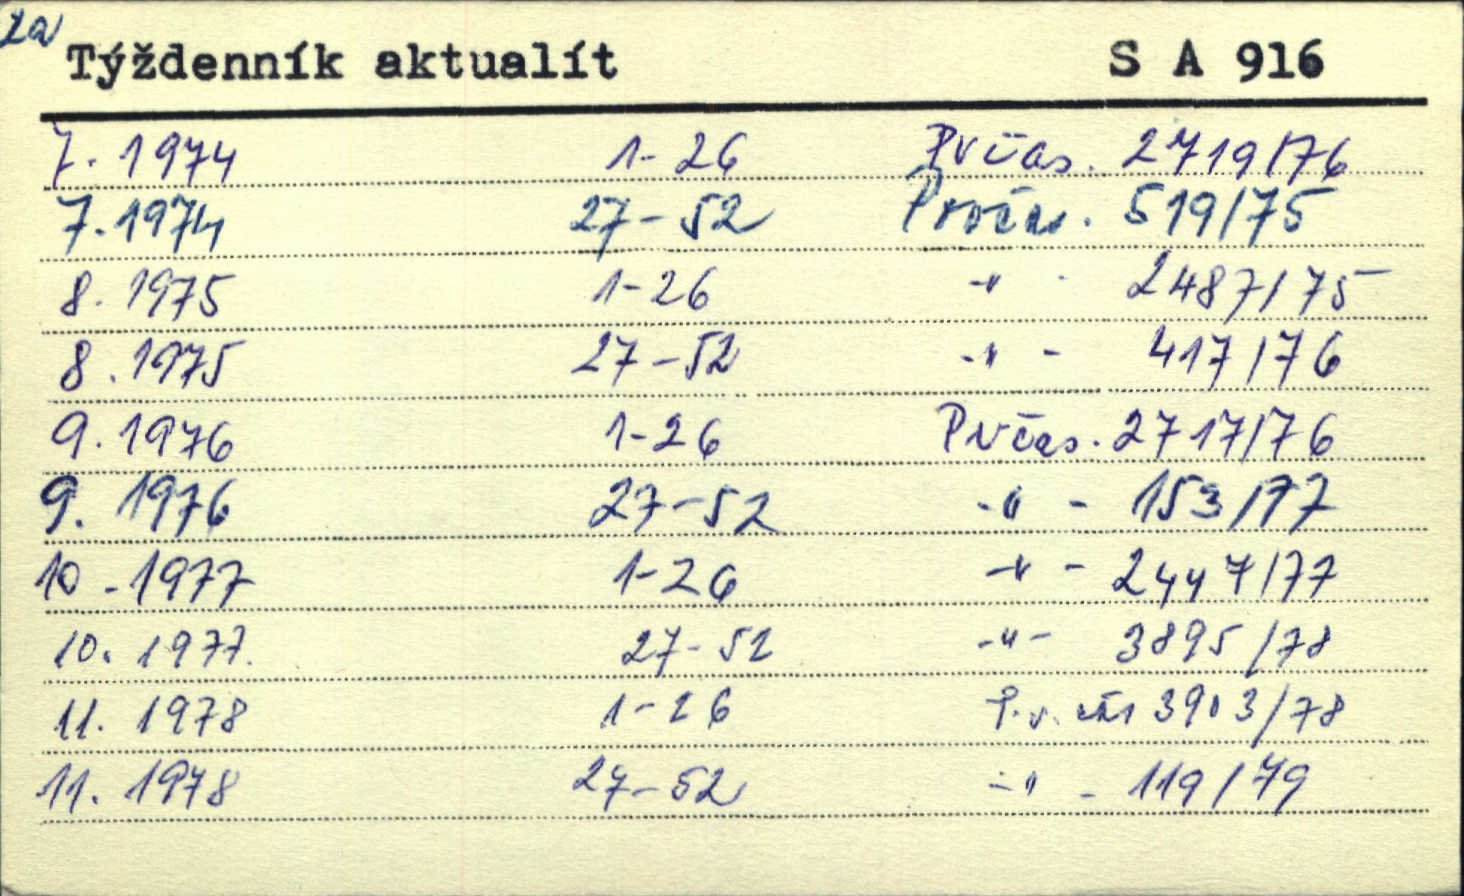 za
Týždenník aktualít S A 916
7. 1974 1-26 Prčas. 2719/76
7. 1974 27-52 Prčas. 519/75
8. 1975 1-26 -"- 2487/75
8. 1975 27-52 -"- 417/76
9. 1976 1-26 Prčas. 2717/76
9. 1976 27-52 -"- 153/77
10. 1977 1-26 -"- 2447/77
10. 1977. 27-52 -"- 3895/78
11. 1978 1-26 P.v. 3903/78
11. 1978 27-52 -"- 119/79